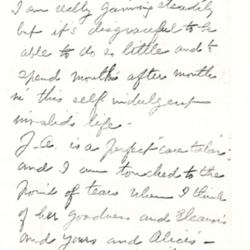 I am really gaining steadily
but it's disgraceful to be
able to do so little and to
spend months after months
in this self indulgent
invalid's life -
J.A. is a perfect "care taker"
and I am touched to the
point of tears when I think
of her goodness and Eleanor's
and yours and Alice's -